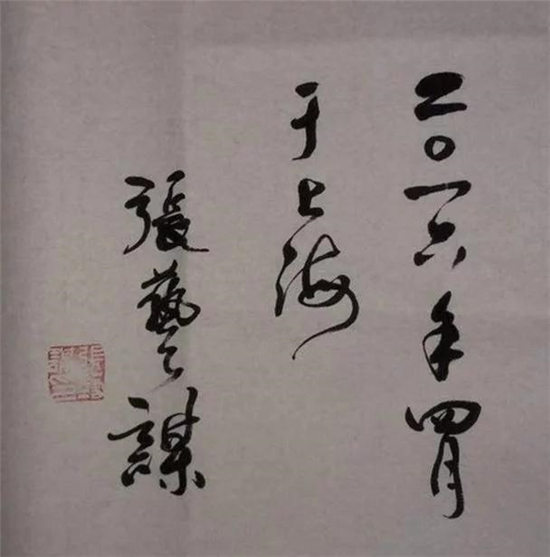 二〇一六年四月
于上海
張藝謀